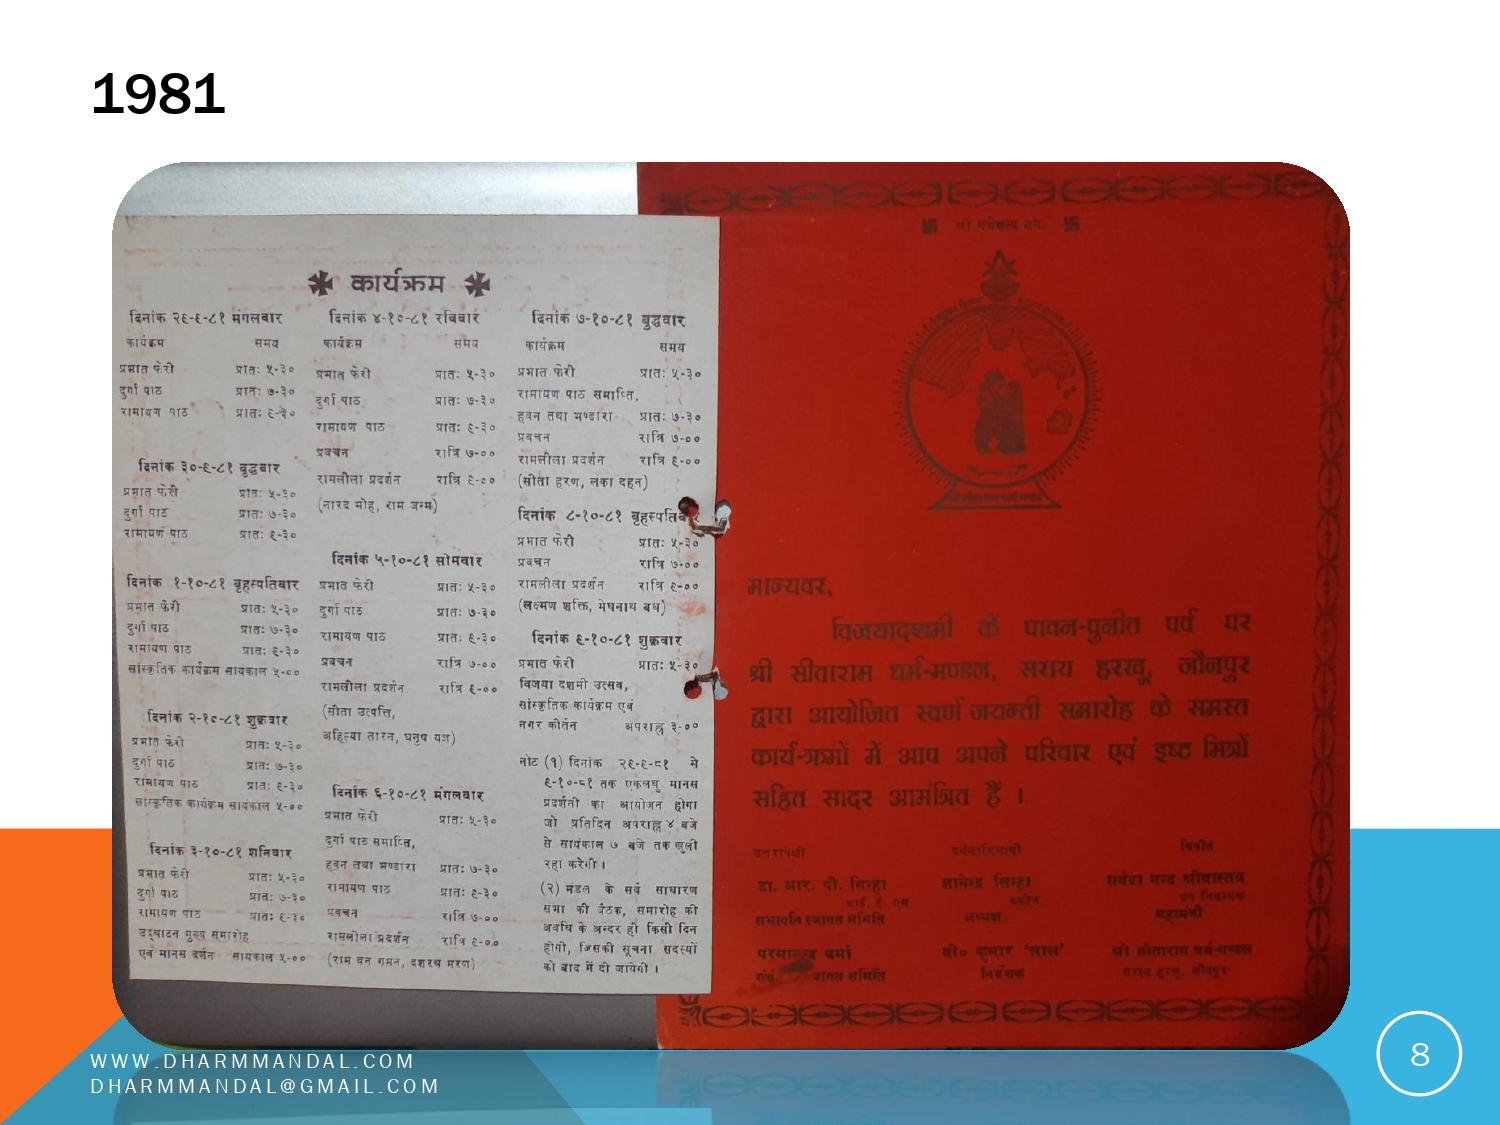 1981
✱ कार्यक्रम ✱
दिनांक २९-९-८१ मंगलवार
कार्यक्रम समय
प्रभात फेरी प्रातः ५-३०
दुर्गा पाठ प्रातः ७-३०
रामायण पाठ प्रातः ९-३०
दिनांक ३०-९-८१ बुद्धवार
प्रभात फेरी प्रातः ५-३०
दुर्गा पाठ प्रातः ७-३०
रामायण पाठ प्रातः ९-३०
दिनांक १-१०-८१ बृहस्पतिवार
प्रभात फेरी प्रातः ५-३०
दुर्गा पाठ प्रातः ७-३०
रामायण पाठ प्रातः ९-३०
सांस्कृतिक कार्यक्रम सायंकाल ५-००
दिनांक २-१०-८१ शुक्रवार
प्रभात फेरी प्रातः ५-३०
दुर्गा पाठ प्रातः ७-३०
रामायण पाठ प्रातः ९-३०
सांस्कृतिक कार्यक्रम सायंकाल ५-००
दिनांक ३-१०-८१ शनिवार
प्रभात फेरी प्रातः ५-३०
दुर्गा पाठ प्रातः ७-३०
रामायण पाठ प्रातः ९-३०
उद्घाटन मुख्य समारोह
एवं मानस दर्शन सायंकाल ५-००
दिनांक ४-१०-८१ रविवार
कार्यक्रम समय
प्रभात फेरी प्रातः ५-३०
दुर्गा पाठ प्रातः ७-३०
रामायण पाठ प्रातः ९-३०
प्रवचन रात्रि ७-००
रामलीला प्रदर्शन रात्रि ९-००
(नारद मोह, राम जन्म)
दिनांक ५-१०-८१ सोमवार
प्रभात फेरी प्रातः ५-३०
दुर्गा पाठ प्रातः ७-३०
रामायण पाठ प्रातः ९-३०
प्रवचन रात्रि ७-००
रामलीला प्रदर्शन रात्रि ९-००
(सीता उत्पत्ति,
अहिल्या तारन, धनुष यज्ञ)
दिनांक ६-१०-८१ मंगलवार
प्रभात फेरी प्रातः ५-३०
दुर्गा पाठ समाप्ति,
हवन तथा भण्डारा प्रातः ७-३०
रामायण पाठ प्रातः ९-३०
प्रवचन रात्रि ७-००
रामलीला प्रदर्शन रात्रि ९-००
(राम वन गमन, दशरथ मरण)
दिनांक ७-१०-८१ बुद्धवार
कार्यक्रम समय
प्रभात फेरी प्रातः ५-३०
रामायण पाठ समाप्ति,
हवन तथा भण्डारा प्रातः ७-३०
प्रवचन रात्रि ७-००
रामलीला प्रदर्शन रात्रि ९-००
(सीता हरण, लंका दहन)
दिनांक ८-१०-८१ बृहस्पतिवार
प्रभात फेरी प्रातः ५-३०
प्रवचन रात्रि ७-००
रामलीला प्रदर्शन रात्रि ९-००
(लक्ष्मण शक्ति, मेघनाथ बध)
दिनांक ९-१०-८१ शुक्रवार
प्रभात फेरी प्रातः ५-३०
विजया दशमी उत्सव,
सांस्कृतिक कार्यक्रम एवं
नगर कीर्तन अपराह्न ३-००
नोट (१) दिनांक २९-९-८१ से
९-१०-८१ तक एकलघु मानस
प्रदर्शनी का आयोजन होगा
जो प्रतिदिन अपराह्न ४ बजे
से सायंकाल ७ बजे तक खुली
रहा करेगी।
(२) मंडल के सर्व साधारण
सभा की बैठक, समारोह की
अवधि के अन्दर ही किसी दिन
होगी, जिसकी सूचना सदस्यों
को बाद में दी जायेगी।
卐 श्री गणेशाय नमः 卐
मान्यवर,
विजयादशमी के पावन-पुनीत पर्व पर
श्री सीताराम धर्म-मण्डल, सराय हरखू, जौनपुर
द्वारा आयोजित स्वर्ण जयन्ती समारोह के समस्त
कार्य-क्रमों में आप अपने परिवार एवं इष्ट मित्रों
सहित सादर आमंत्रित हैं ।
उत्तरापेक्षी दर्शनाभिलाषी विनीत
डा. आर. पी. सिन्हा ज्ञानेन्द्र सिन्हा सर्वदा नन्द श्रीवास्तव
आई. ए. एस वकील
सभापति स्वागत समिति अध्यक्ष महामंत्री
परमानन्द वर्मा वी० कुमार 'लाल' श्री सीताराम धर्म-मण्डल
स्वागत समिति निर्देशक सराय हरखू, जौनपुर
WWW.DHARMMANDAL.COM
DHARMMANDAL@GMAIL.COM
8